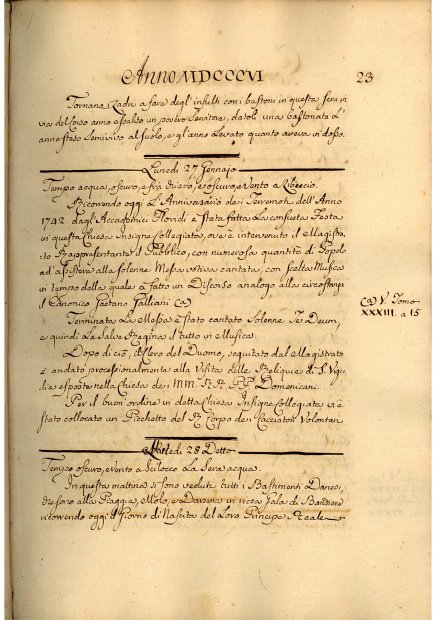 Anno MDCCCVI
23
Tornano i Ladri a fare degl' insulti con i bastoni in questa sera in
via del Corso anno assalito un povero Servitore, datoli una bastonata l'
anno steso semivivo al suolo, e gl' anno levato quanto aveva in dosso.
Lunedì 27 Gennajo
Tempo acqua, oscuro, e frà chiaro, e oscuro, e Vento a Libeccio.
Ricorendo oggi l'Anniversario dei Terremoti dell'Anno
1742. dagl' Accademici Floridi è stata fatta la consueta Festa
in questa Chiesa Insigne Collegiata, ove è intervenuto il Magistra,
to Rappresentante il Pubblico, con numerosa quantità di Popolo
ad assistere alla solenne Messa votiva cantata, con scelta Musica
in tempo della quale è fatto un Discorso analogo alla circostanza
il Canonico Gaetano Palliani (a)
(a) V. Tomo
XXXIII. a 15
Terminata la Messa è stato cantato Solenne Te Deum,
e quindi la Salve Regina il tutto in Musica.
Dopo di ciò, il Clero del Duomo, seguitato dal Magistrato
è andato processionalmente alla Visita delle Reliquie di S. Vigi,
lie esposte nella Chiesa dei MM. RR. PP. Domenicani.
Per il buon' ordine in detta Chiesa Insigne Collegiata vi è
stato collocato un Picchetto del R. Corpo dei Cacciatori Volontari.
Martedì 28 Detto
Tempo oscuro, e Vento a Scilocco la Sera acqua.
In questa mattina si sono veduti tutti i Bastimenti Danesi,
che sono alla Piaggia, Molo, e Darsena in ricca Gala di Bandiere
ricorrendo oggi il Giorno di Nascita del Loro Principe Reale